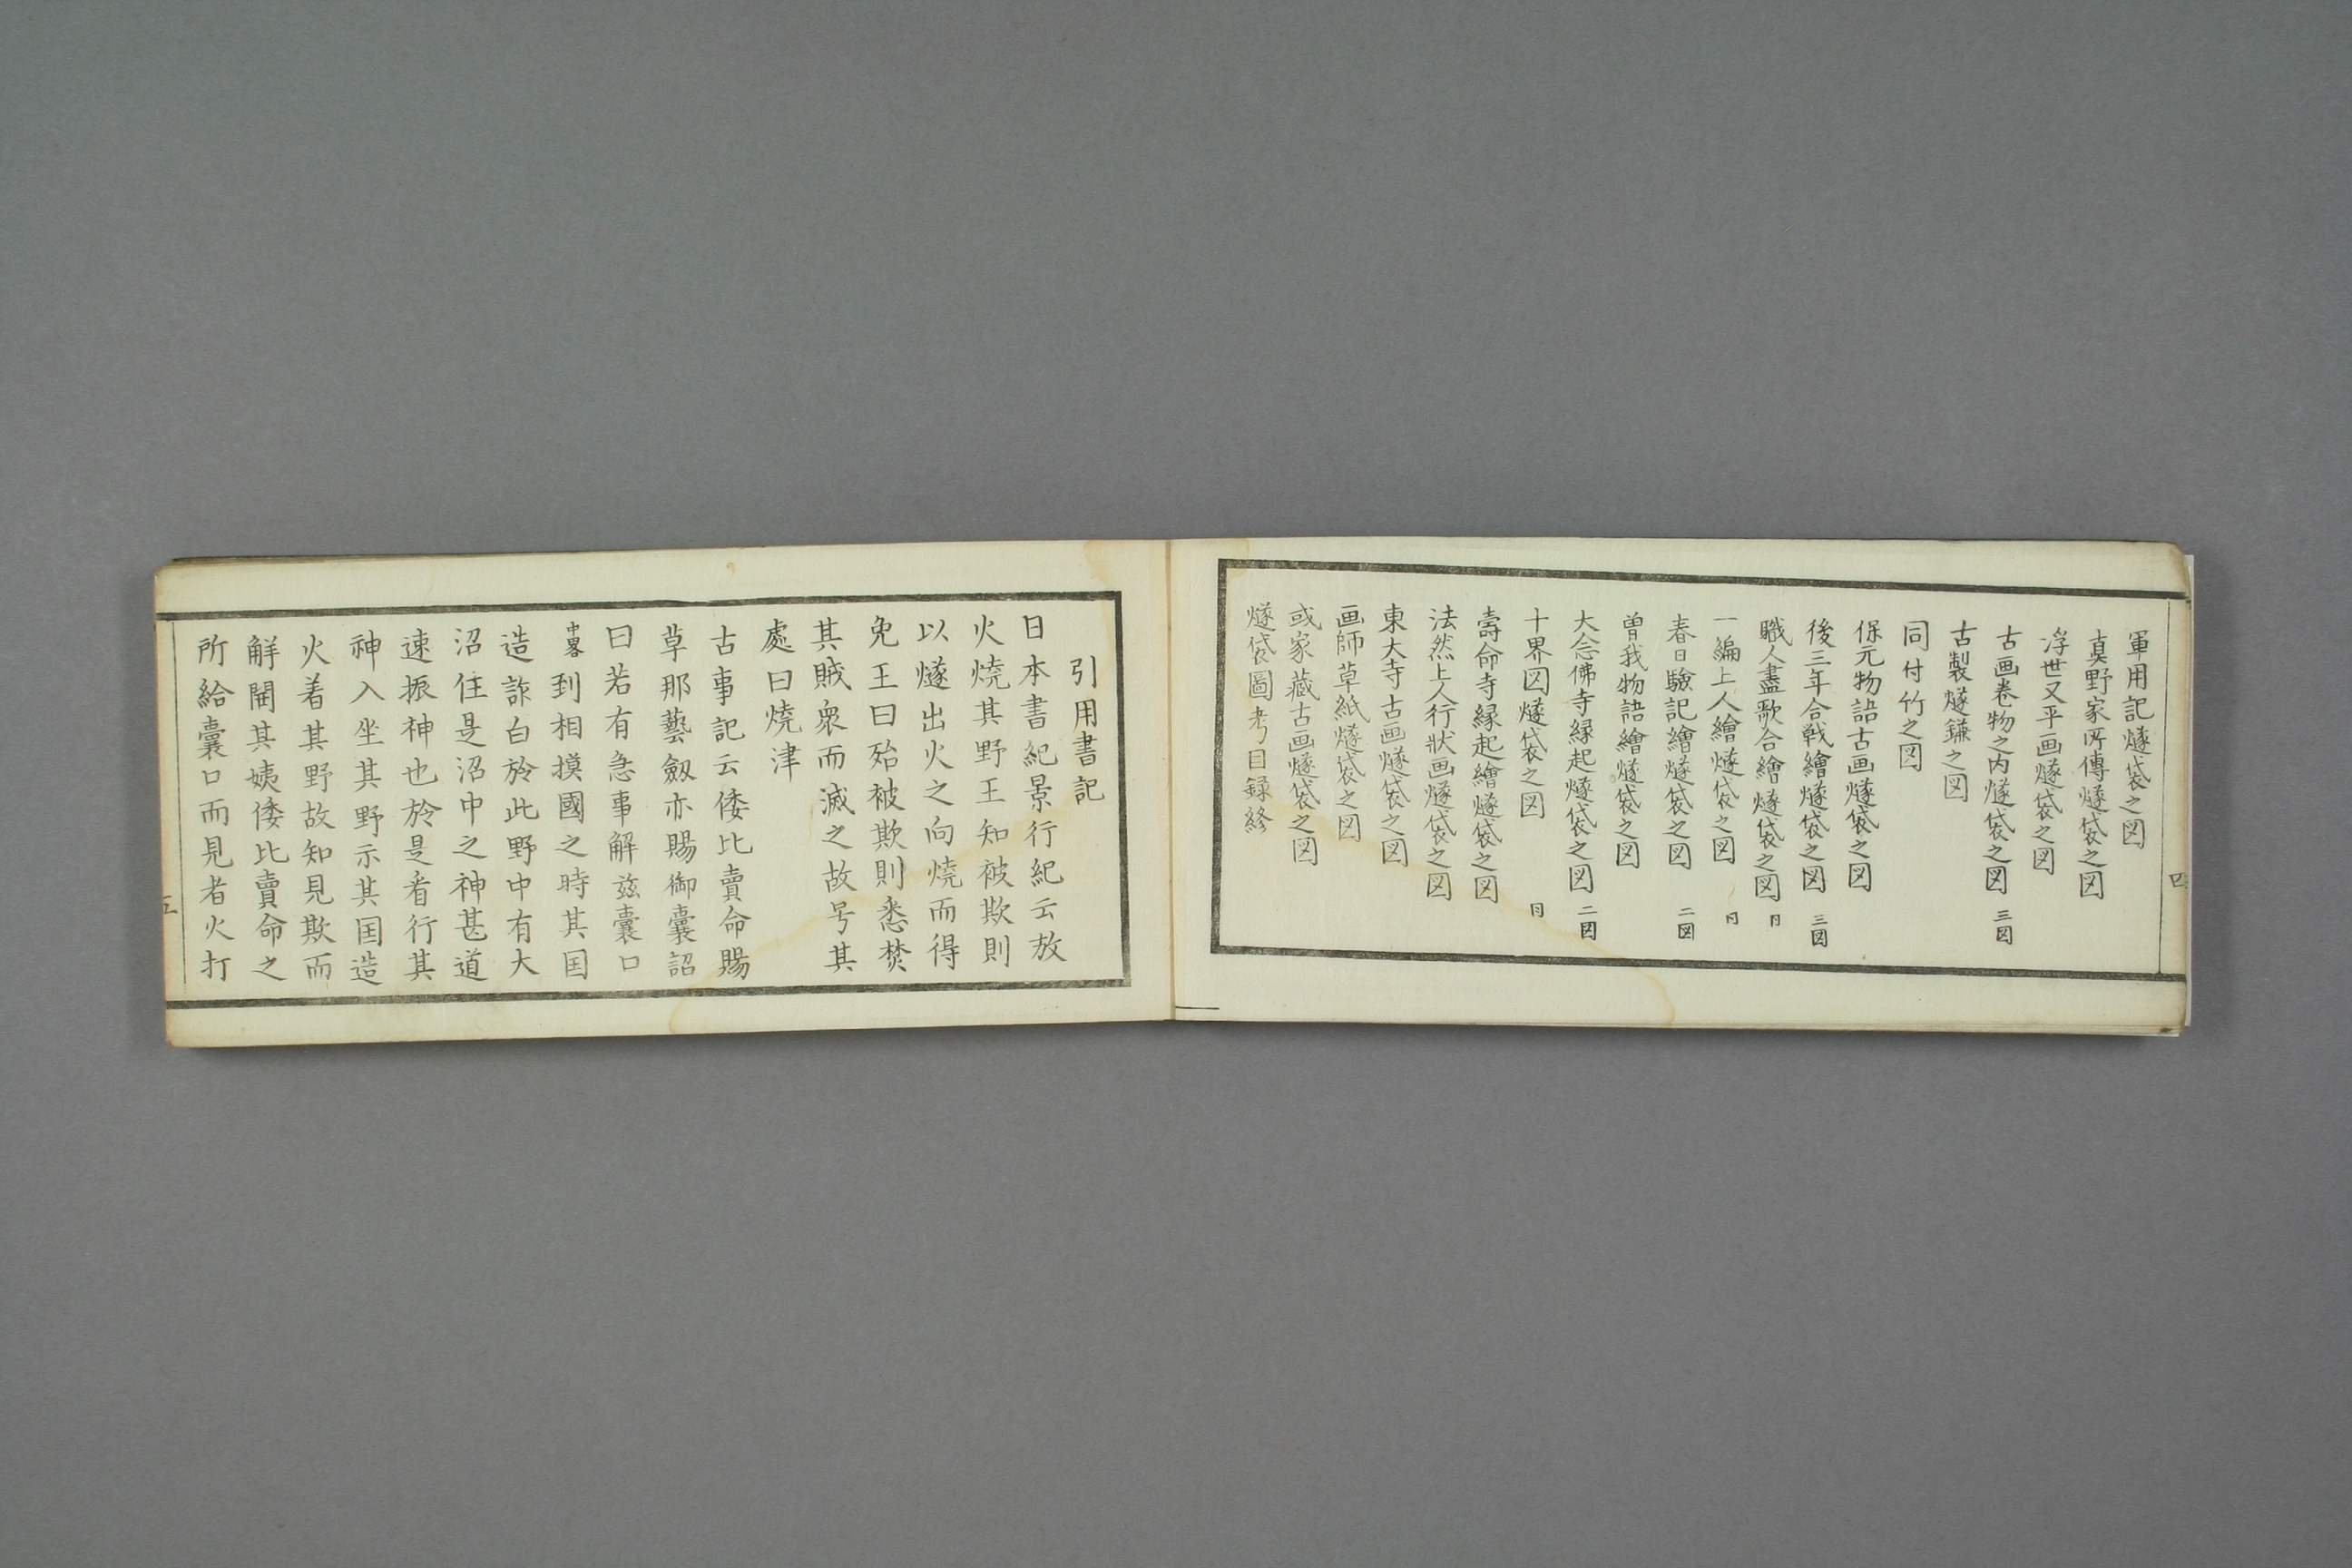 軍用記燧袋之図
真野家所傳燧袋之図
浮世又平画燧袋之図
古画巻物之内燧袋之図 三図
古製燧鎌之図
同付竹之図
保元物語古画燧袋之図
後三年合戦繪燧袋之図 三図
職人盡歌合繪燧袋之図 同
一編上人繪燧袋之図 同
春日驗記繪燧袋之図 二図
曽我物語繪燧袋之図
大念佛寺縁起燧袋之図 二図
十界図燧袋之図 同
壽命寺縁起繪燧袋之図
法然上人行狀画燧袋之図
東大寺古画燧袋之図
画師草紙燧袋之図
或家藏古画燧袋之図
燧袋圖考目録終
四
引用書記
日本書紀景行紀云放
火燒其野王知被欺則
以燧出火之向燒而得
免王曰殆被欺則悉焚
其賊衆而滅之故号其
處曰燒津
古事記云倭比賣命賜
草那藝劔亦賜御囊詔
曰若有急事解茲囊口
中畧到相摸國之時其国
造詐白於此野中有大
沼住是沼中之神甚道
速振神也於是看行其
神入坐其野示其国造
火着其野故知見欺而
解開其姨倭比賣命之
所給囊口而見者火打
五